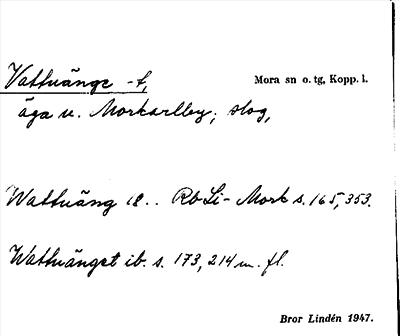 Vattuänge -t, Mora sn o. tg, Kopp. l.
äga v. Morkarlby; skog,
Wattuäng il.. Rb Li- Mork s. 165, 353.
Wattuänget ib. s. 173, 214 m. fl.
Bror Lindén 1947.